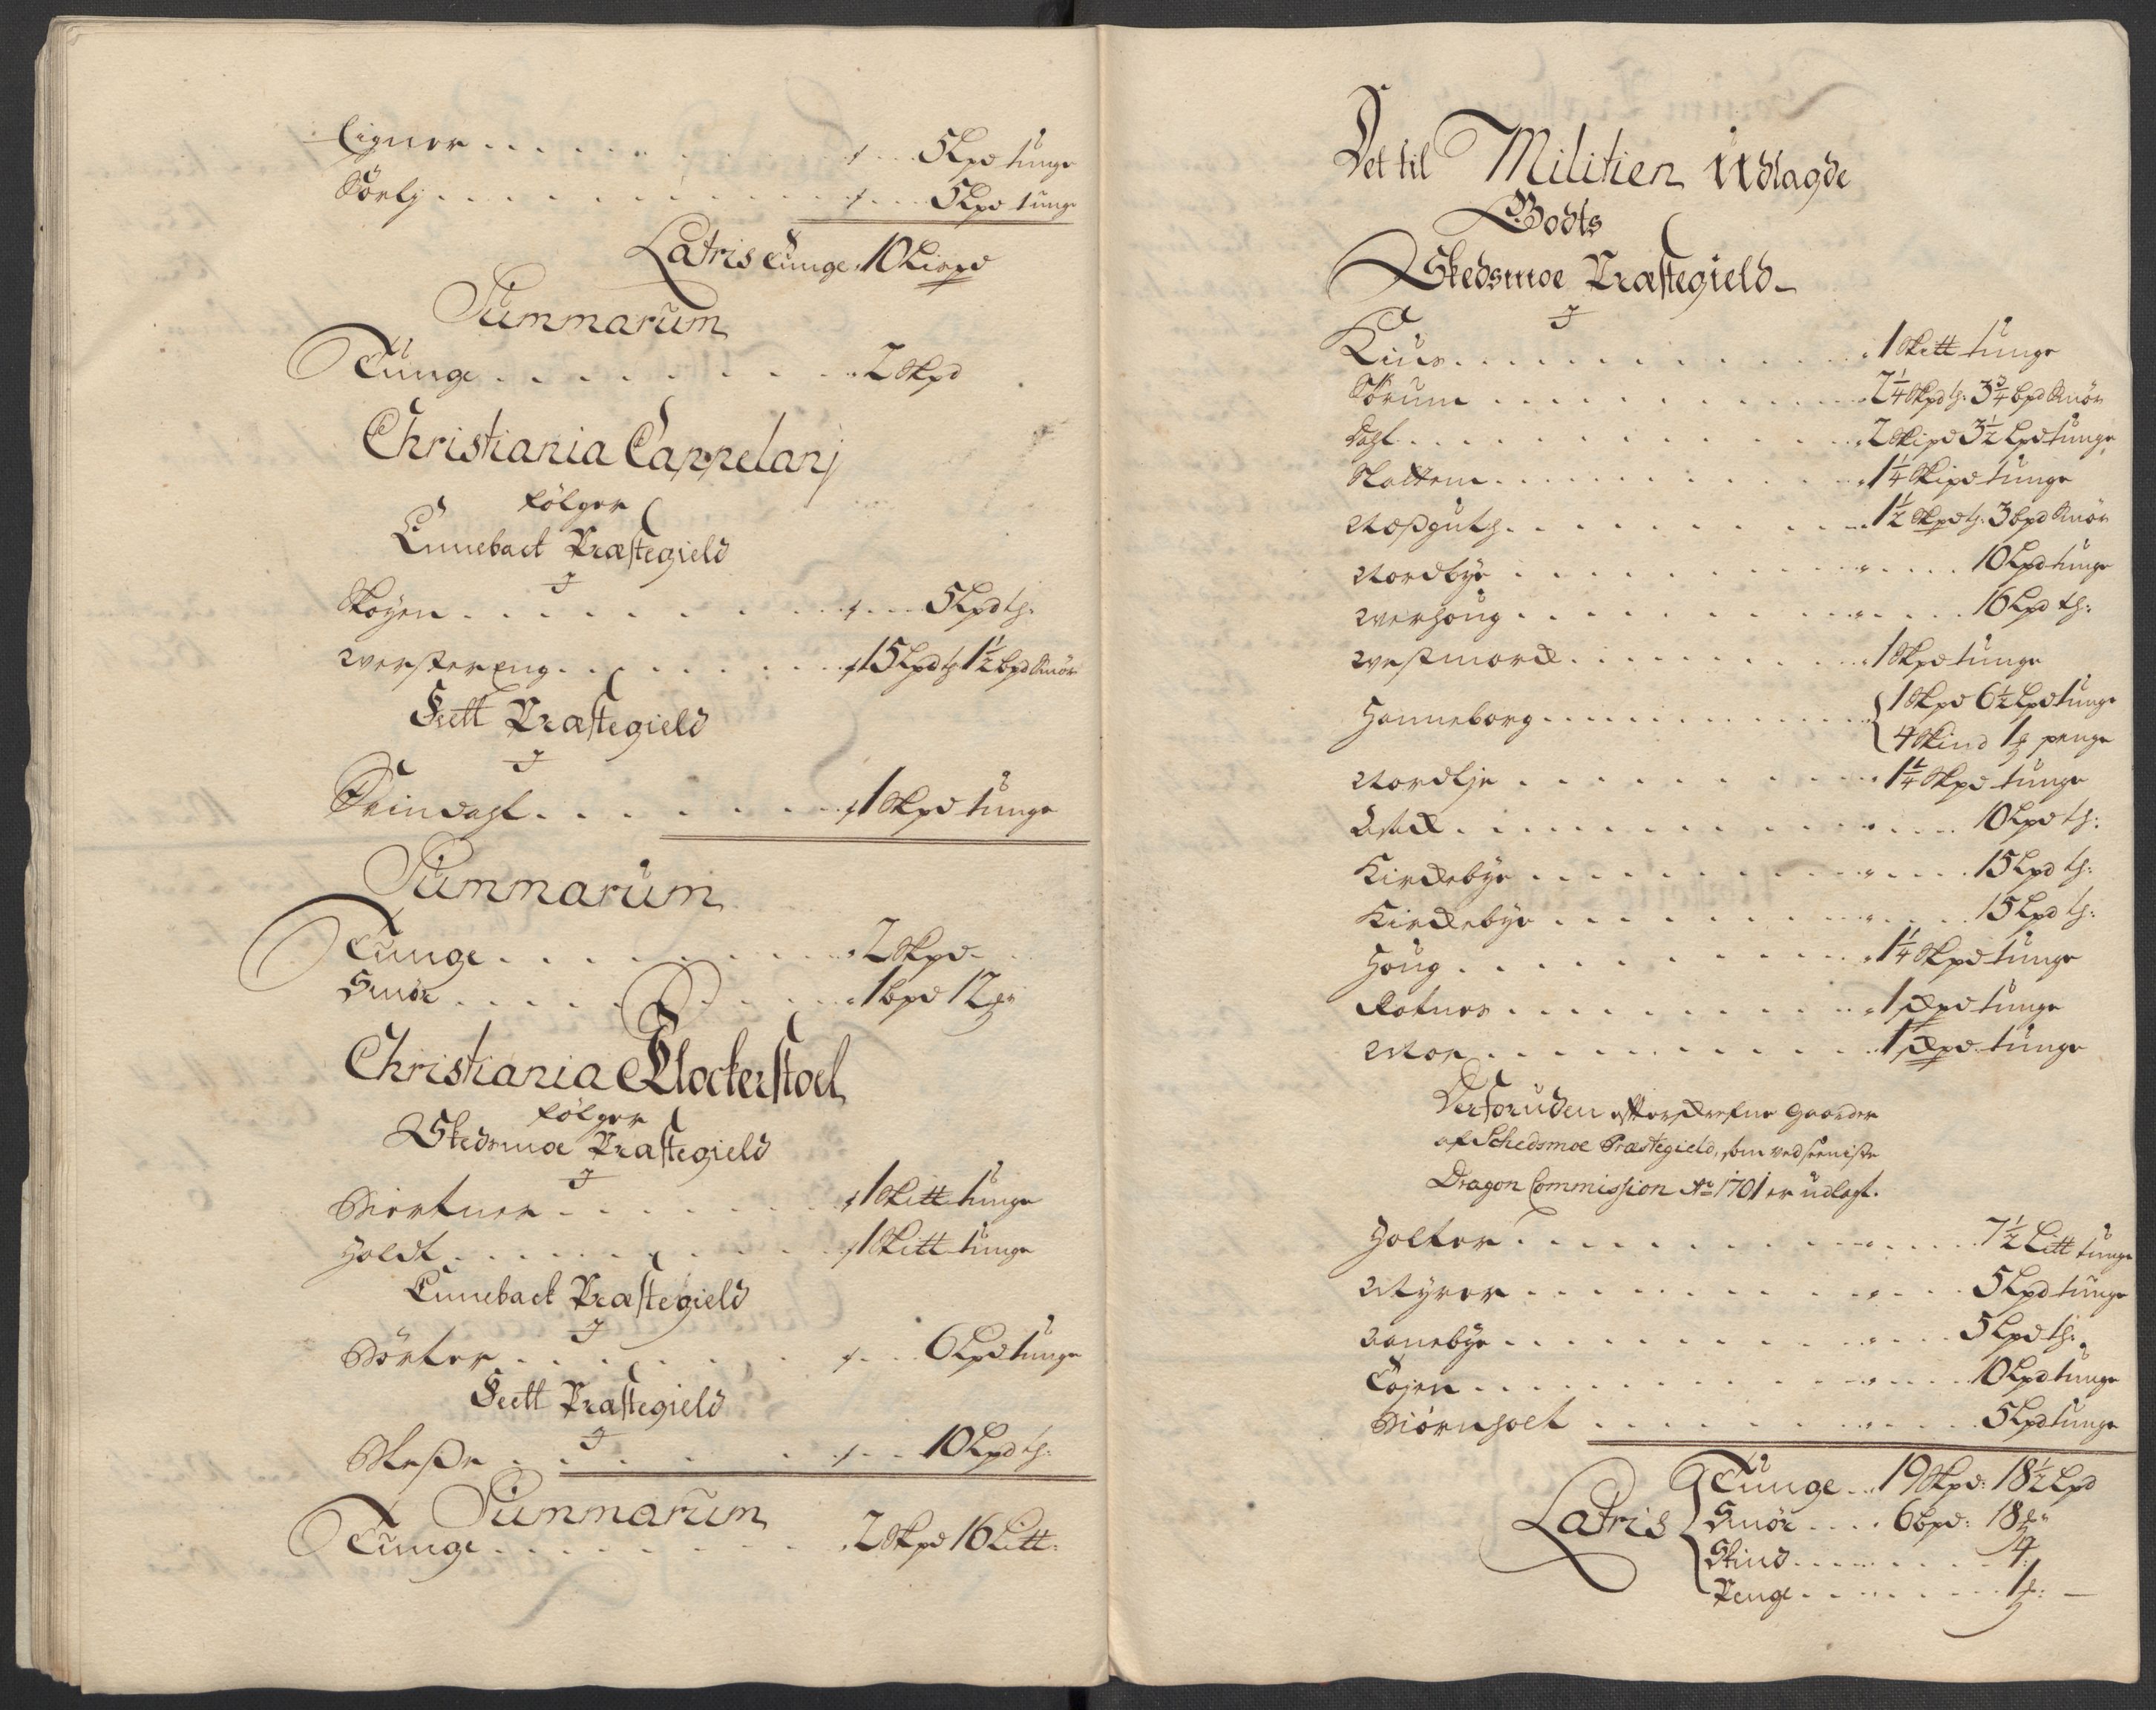 Eigner . . . . . . . . . 5 Lpd tunge
Sörlj . . . . . . . . . 5 Lpd tunge
Latris tunge 10 Lispd
Summarum
Tunge . . . . . . . . . 2 Skpd
Christiania Cappelanj
følger
Enneback Præstegield
J
Skoÿen . . . . . . . . . 5 Lpd th:
Westereng . . . . . . . . . 15 Lpd th 1½ bpd Smör
Feett Præstegield
J
Svindahl . . . . . . . . . 1 Skpd tunge
Summarum
Tunge . . . . . . . . . 2 Skpd
Smör . . . . . . . . . 1 bpd 12
Christiania Klockerstoel
følger
Skedsmoe Præstegield
J
Biertner . . . . . . . . . 1 Skitt tunge
Holdt . . . . . . . . . 1 Skitt tunge
Enneback Præstegield
J
Börter . . . . . . . . . 6 Lpd tunge
Feett Præstegield
J
. . . . . . . . . 10 Lpd th:
Summarum
Tunge . . . . . . . . . 2 Skpd 16 Litt:
Det til Militien Udlagde
Godts
Skedsmoe Præstegield
J
Kius . . . . . . . . . 1 Skitt tunge
Sörum . . . . . . . . . 2¼ Skpd th: 3¾ bpd Smör
Dahl . . . . . . . . . 2 Skipd 3½ Lpd tunge
. . . . . . . . . 1¼ Skipd tunge
. . . . . . . . . 1½ Skpd th: 3 bpd Smör
Nordbye . . . . . . . . . 10 Lpd tunge
Werhoug . . . . . . . . . 16 Lpd th:
Westmord . . . . . . . . . 1 Skpd tunge
Hanneborg . . . . . . . . . 1 Skpd 6½ Lpd tunge
4 Skind 1 penge
Nordlje . . . . . . . . . 1¼ Skpd tunge
. . . . . . . . . 10 Lpd th:
Kirckebye . . . . . . . . . 15 Lpd th:
Kirckebye . . . . . . . . . 15 Lpd th:
Houg . . . . . . . . . 1¼ Skpd tunge
Rotnes . . . . . . . . . 1 Skpd tunge
Moe . . . . . . . . . 1 Skpd tunge
Derforuden efterskrefne Gaarder
af Schedsmoe Præstegield, som ved seeniste
Dragon Commission Ao 1701 er udlagt.
Holter . . . . . . . . . 7½ Litt tunge
Myrer . . . . . . . . . 5 Lpd tunge
Aanebye . . . . . . . . . 5 Lpd th:
Töjen . . . . . . . . . 10 Lpd tunge
Biörnholt . . . . . . . . . 5 Lpd tunge
Latris Tunge . . . 19 Skpd: 18½ Lpd
Smör . . . . 6 bpd: 18
Skind . . . . . . . . . 4
Penge . . . . . . . . . 1